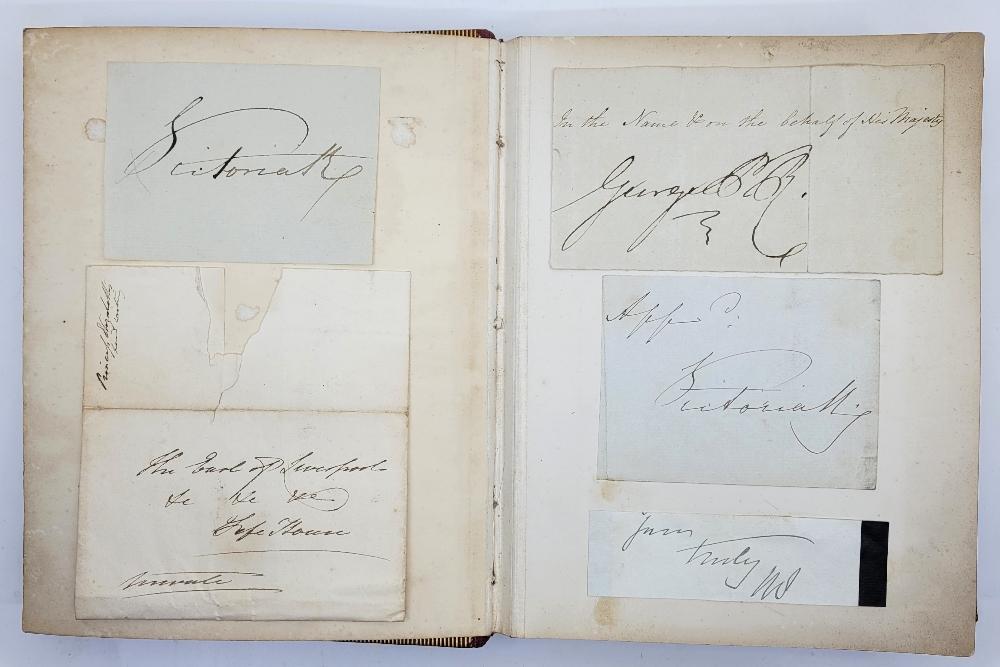 Victoria R
Princess Elizabeth's
hand writing
The Earl of Liverpool
&c &c &c
Fife House
Private
In the Name & on the behalf of His Majesty
George P R.
App d.
Victoria R
Yours
truly